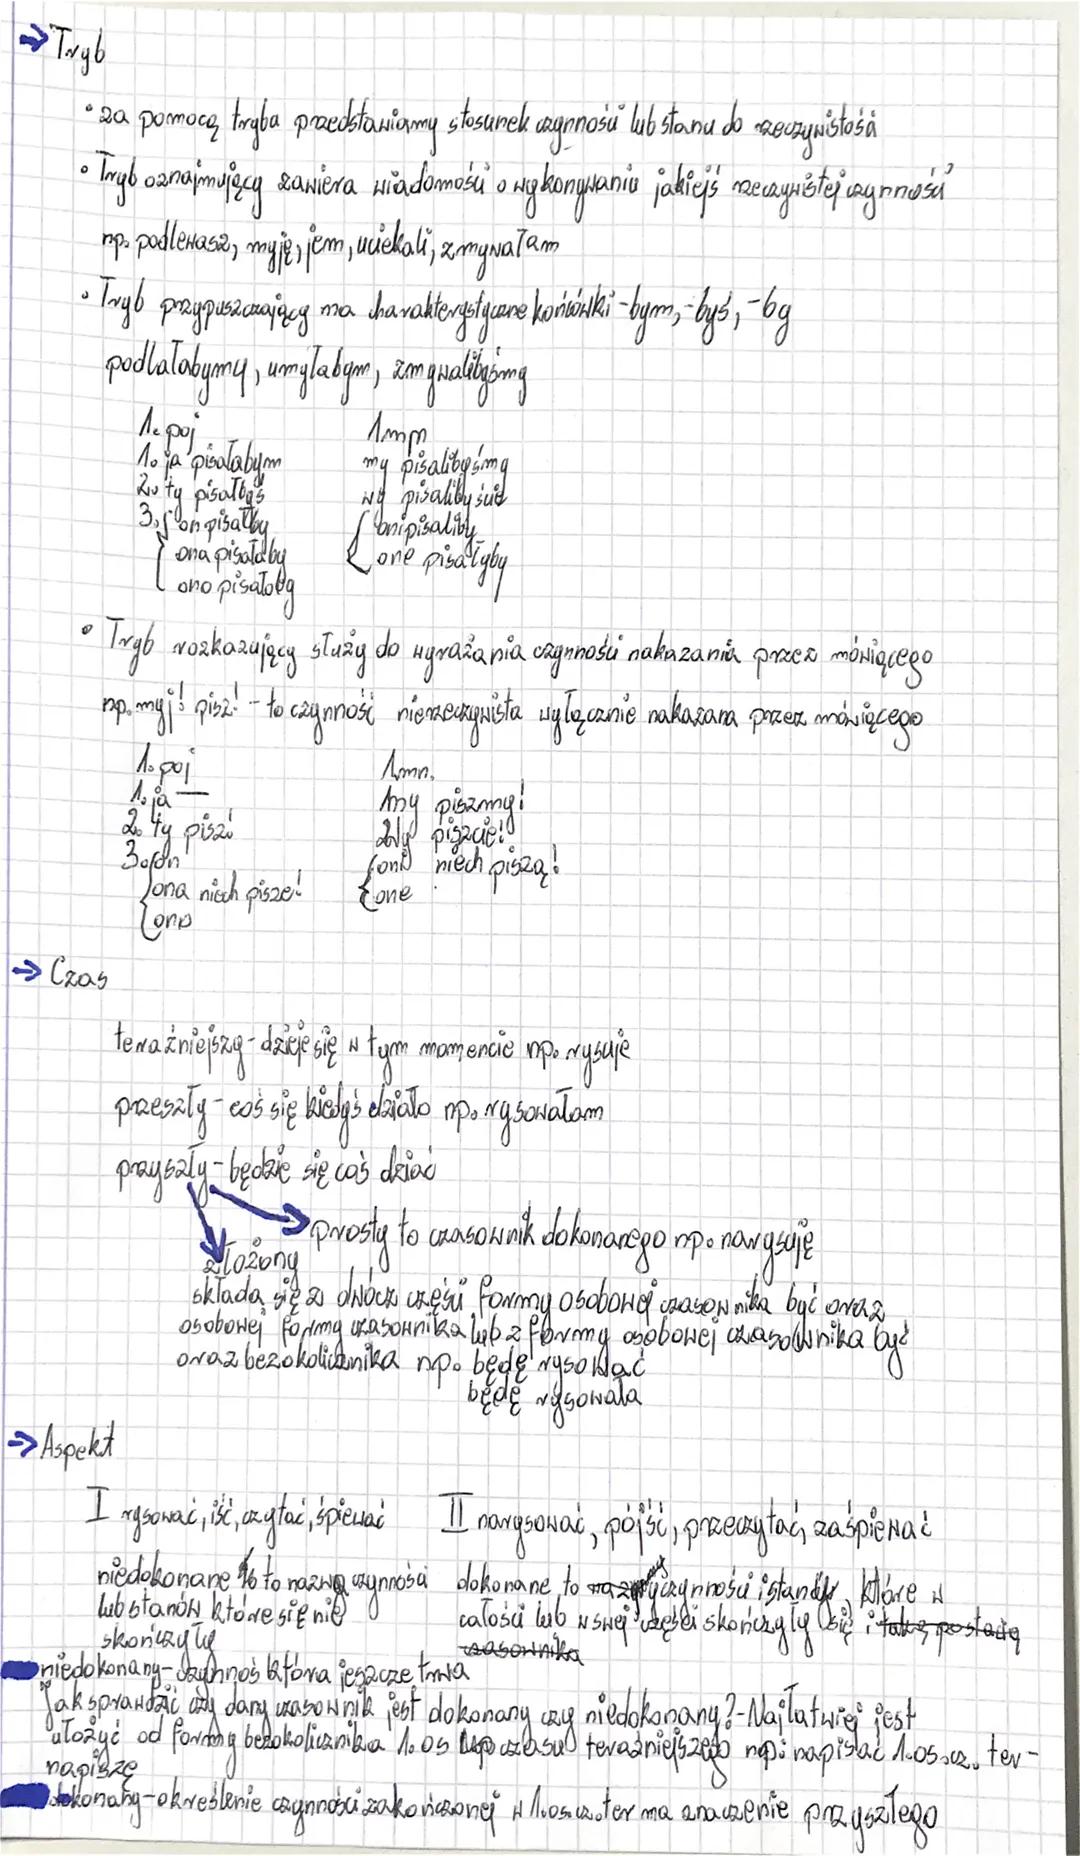 → Tryb
• za pomocą tryba przedstawiamy stosunek czynności lub stanu do rzeczywistości
• Tryb oznajmujący zawiera wiadomości o wykonywaniu jakiejś rzeczywistej czynności
np. podlewasz, myję, jem, uciekali, zmywałam
• Tryb przypuszczający ma charakterystyczne końcówki -bym, -byś, -by
podlałabymy, umyłabym, zmywalibyśmy
l. poj l mn
1. ja pisałabym my pisalibyśmy
2. ty pisałbyś wy pisalibyście
3. on pisałby oni pisaliby
ona pisałaby one pisałyby
ono pisałoby
• Tryb rozkazujący służy do wyrażania czynności nakazania przez mówiącego
np. myj! pisz! - to czynność nierzeczywista wyłącznie nakazana przez mówiącego
l. poj l.mn.
1. ja — 1my piszmy!
2. ty pisz! 2wy piszcie!
3. on oni niech piszą!
ona niech pisze! one
ono
→ Czas
teraźniejszy - dzieje się w tym momencie np. rysuje
przeszły - coś się kiedyś działo np. rysowałam
przyszły - będzie się coś dziać
prosty to czasownik dokonanego np. narysuję
złożony
składa się z dwócz części formy osobowej czasownika być oraz
osobowej formy czasownika lub z formy osobowej czasownika być
oraz bezokolicznika np. będę rysować
będę rysowała
→ Aspekt
I rysować, iść, czytać, śpiewać II narysować, pójść, przeczytać, zaśpiewać
niedokonane to nazwy czynności dokonane to czynności i stany, które w
lub stanów które się nie całości lub w swej części skończyły się i takę postacią
skończyły czasownika
niedokonany - czynnoś która jeszcze trwa
Jak sprawdzić czy dany czasownik jest dokonany czy niedokonany? - Najłatwiej jest
ułożyć od formy bezokolicznika 1. os czasu teraźniejszego np. napisać 1.os.cz. ter -
napiszę
dokonany - określenie czynności zakończonej w 1.os.cz.ter ma znaczenie przyszłego